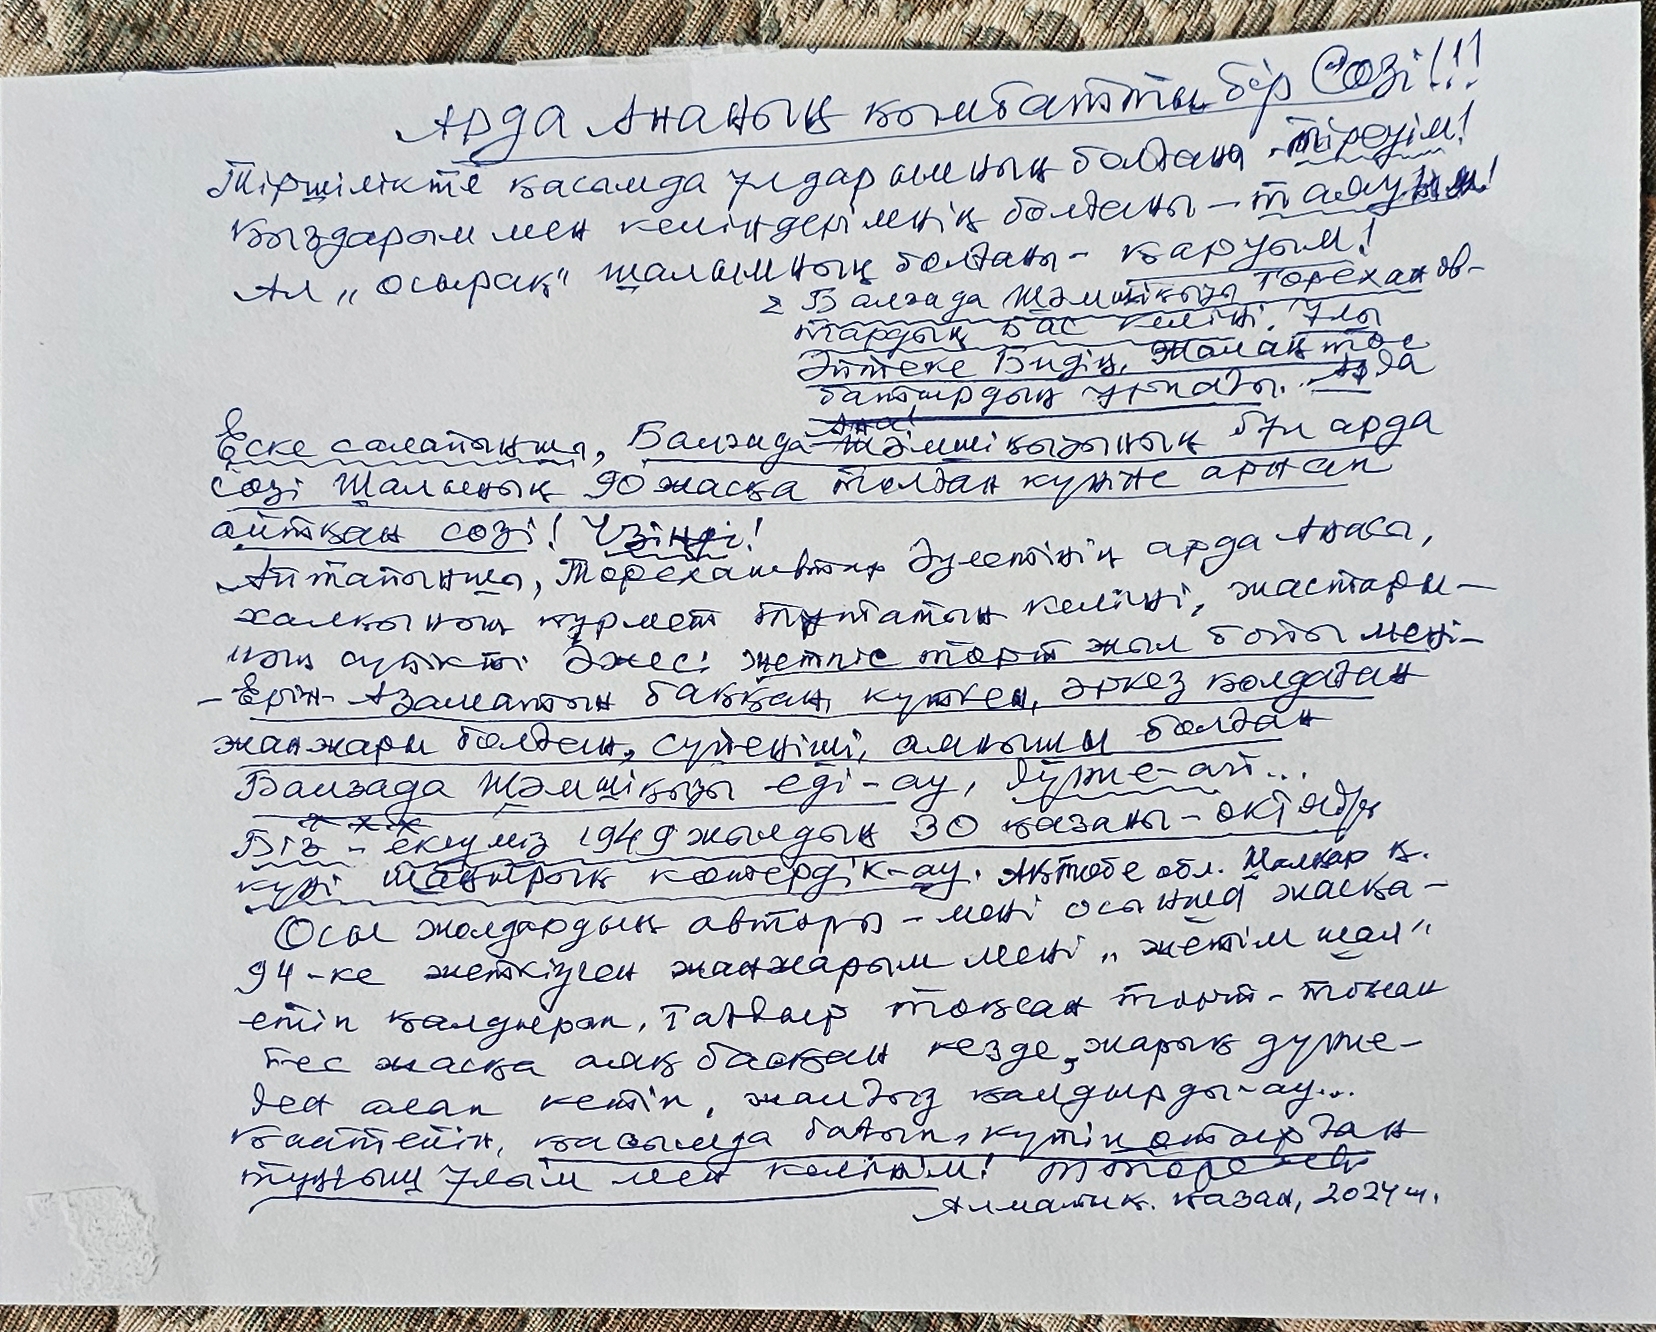 Арда Ананың қымбатты бір Сөзі!!!
Тіршілікте қасымда ұлдарымның болғаны - тірегім!
Қыздарым мен келіндерімнің болғаны - таяуым!
Ал „осырақ" шалымның болғаны - қаруым!
Балғада Жәмшіқызы Төреханов-
тардың Бас келіні. Ұлы
Әйтеке Бидің, Жалаңтөс
батырдың ұрпағы.. Арда
Ана!
Еске салайынша, Балғада Жәмшіқызының бұл арда
сөзі Шалының 90 жасқа толған күніне арнап
айтқан сөзі! Үзінді!
Айтайынша, Төрехановтар Әулетінің арда Анасы,
халқының құрмет тұтатын келіні, жастары-
ның сүйікті Әжесі жетпіс төрт жыл бойы мені-
- Ерін- Азаматын баққан, күткен, әркез қолдаған
жанжары болған, сүйеніші, алқышы болған
Балғада Жәмшіқызы еді-ау, дүние-ай...
Біз - екеуміз 1949 жылдың 30 қазаны - октябрь
күні шаңырақ көтердік-ау. Ақтөбе обл. Шалқар қ.
Осы жолдардың авторы - мені осынша жасқа -
94-ке жеткізген жанжарым мені „жетім шал"
етіп қалдырып, ғажыр тоқсан төрт - тоқсан
бес жасқа аяқ басқан кезде, жарық дүние-
ден алап кетіп, жалғыз қалдырды-ау...
Қайтейін, қасымда бағып, күтіп отырған
тұңғыш ұлым мен келінім!
Алматы қ. қазан, 2024 ж.